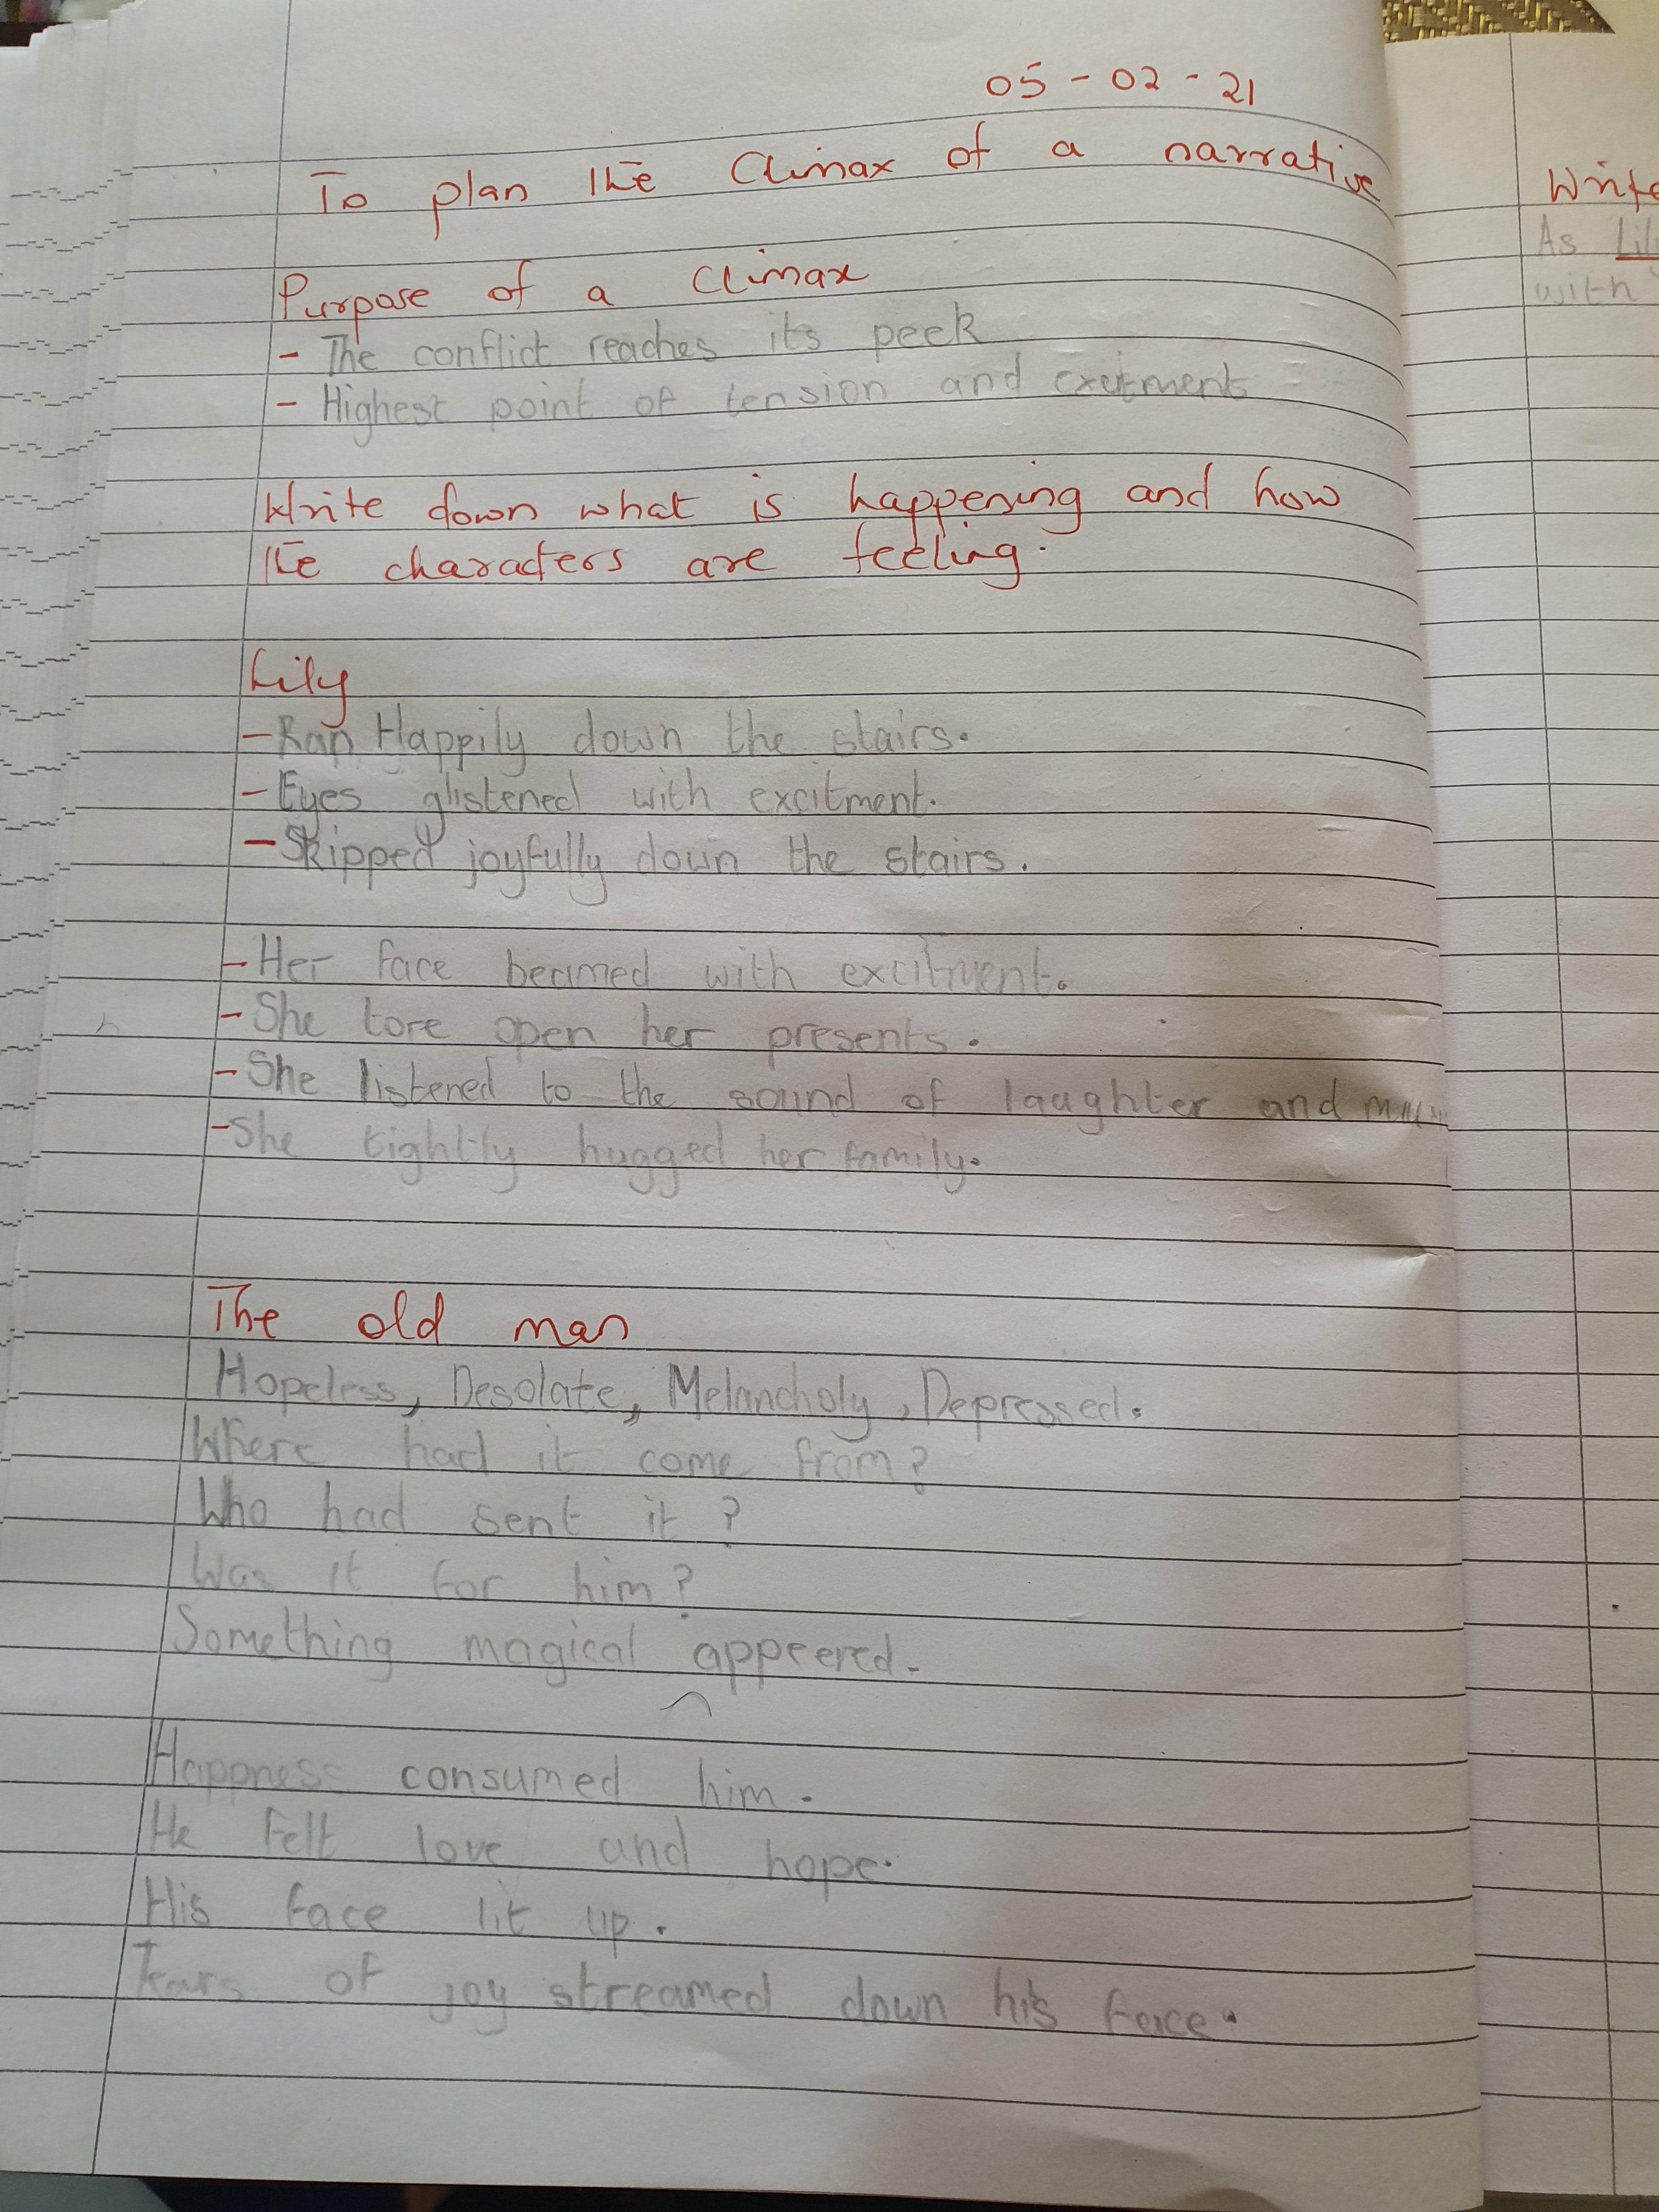 05 - 02 - 21
To plan the Climax of a narrative
Purpose of a Climax
- The conflict reaches its peek
- Highest point of tension and excitments
Write down what is happening and how
the characters are feeling.
Lily
- Ran Happily down the stairs.
- Eyes glistened with excitment.
- Skipped joyfully down the stairs.
- Her face beamed with excitment.
- She tore open her presents.
- She listened to the sound of laughter and
- She tightly hugged her family.
The old man
Hopeless, Desolate, Melancholy, Depressed.
Where had it come from?
Who had sent it?
Was it for him?
Something magical appeered.
Happness consumed him.
He felt love and hope.
His face lit up.
Tears of joy streamed down his face.
Write
As Lil
with